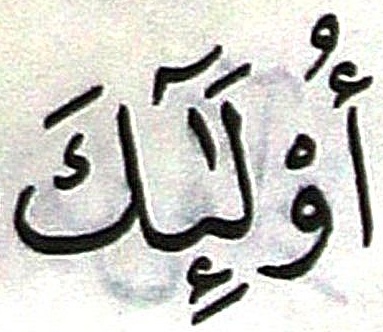 أُو۟لَٰٓئِكَ